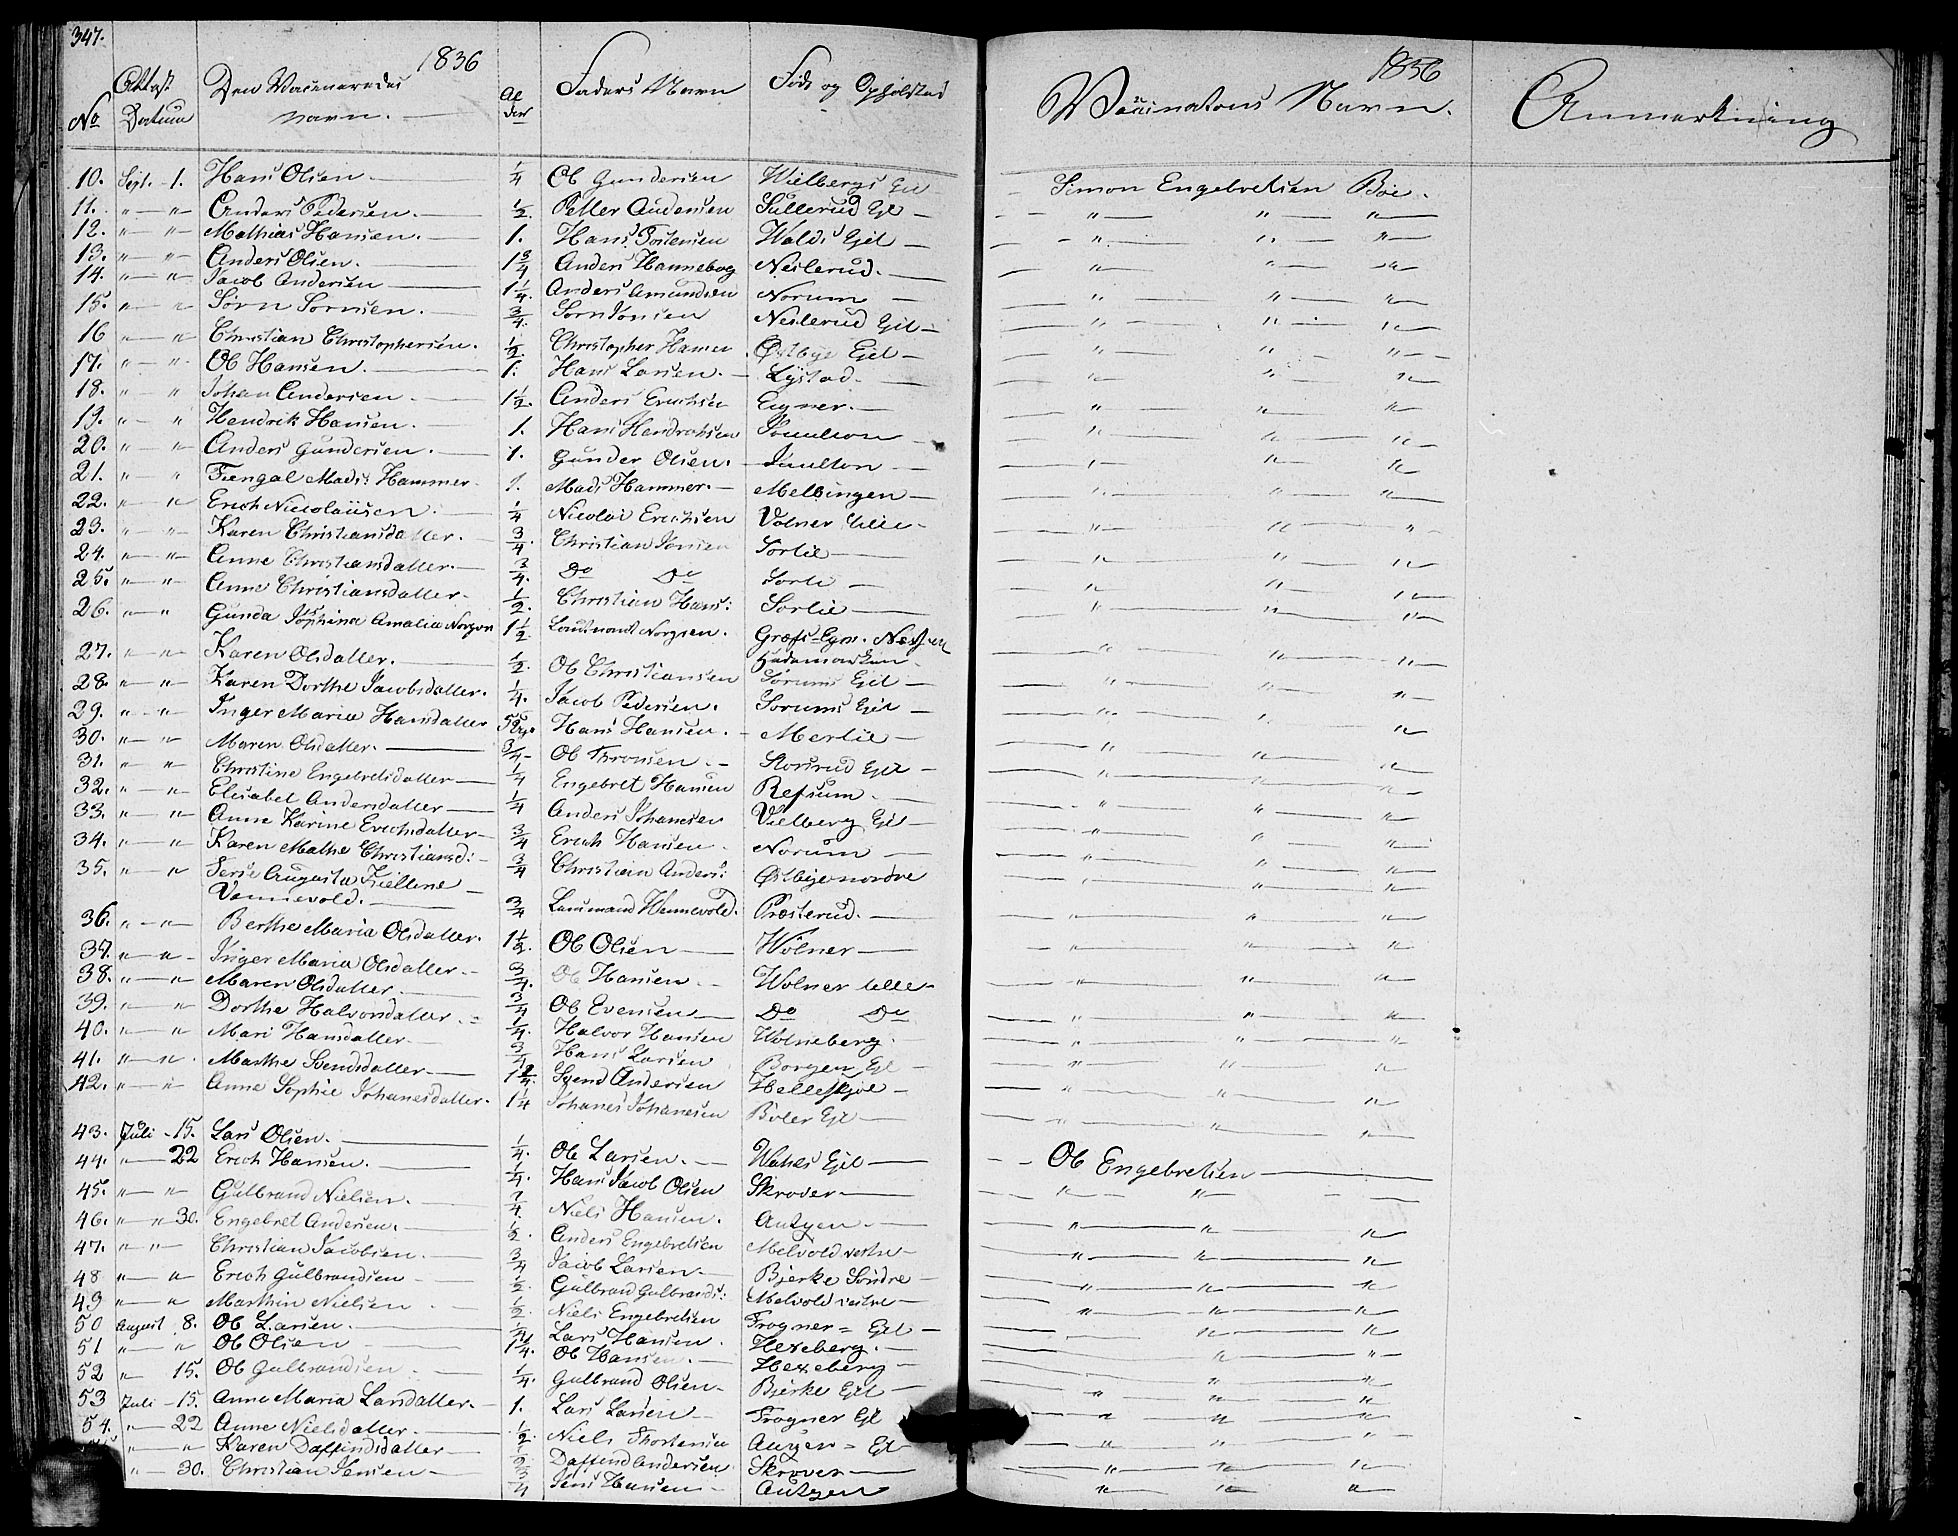 347.
1836
1836
No Attest Datum Den Vaccineredes Navn. Alder Faders Navn Føde og Opholdsted Vaccinatons Navn. Anmerkning
10. Sept. 1. Hans Olsen. 1/4 Ole Gundersen Wielbergs Eiet Simon Engebretsen Böe.
11. " " Anders Pedersen. 1/2. Petter Andersen Sullerud Eiet " " "
12. " " Mathias Hansen. 1. Hans Torstensen Walds Eiet " " "
13. " " Anders Olsen. 1 3/4 Anders Hannebog Neslerud. " " "
14. " " Jacob Andersen 1 1/4. Anders Amundsen Norum " " "
15. " " Sörn Sörnsen. 3/4. Sörn Jonsen Neslerud Eiet " " "
16 " " Christian Christophersen. 1/2 Christopher Hansen Østbye Eiet " " "
17. " " Ole Hansen. 1. Hans Larsen. Lÿstad. " " "
18. " " Johan Andersen. 1 1/2. Anders Erichsen Eigner. " " "
19. " " Hendrik Hansen. 1. Hans Hendrichsen " " "
20. " " Anders Gundersen. 1. Gunder Olsen. " " "
21. " " Fiengal Mads: Hammer. 1. Mads Hammer. Melbingen " " "
22. " " Erich Nicolaüsen. 1/4 Nicolai Erichsen Volner lille " "
23. " " Karen Christiansdatter. 3/4. Christian Jonsen Sorlie " " "
24. " " Anne Christiansdatter. 3/4. Do Do Sorli " " "
25. " " Anne Christiansdatter. 1/2. Christian Hans: Sorlie " " "
26. " " Gunda Josphina Amalia Norgren 1 1/2 Loutnant Norgren. Græfs-Egn.
Hedemarken " " "
27. " " Karen Olsdatter. 1/2. Ole Christiansen Sörums Eiet " " "
28. " " Karen Dorthe Jacobsdatter. 1/4. Jacob Pedersen. Sorums Eiet " "
29. " " Inger Maria Hansdatter Hans Hansen. Merlie " " "
30. " " Maren Olsdatter. 3/4 Ole Thronsen. Storsrud Eiet " " "
31. " " Christine Engebretsdatter 1/4 Engebret Hansen Refsum. " " "
32. " " Elisabet Andersdatter 1/4 Anders Johansen Vielberg Eiet " " "
33. " " Anne Karine Erichsdatter 3/4 Erich Hansen Norum " " "
34. " " Karen Mathe Christiansd: 3/4 Christian Anders: Østbye nordre " " "
35. " " Augusta
Vennevold. 3/4 Lensmand Wennevold. Præsterud. " " "
36. " " Berthe Maria Olsdatter. 1 1/2. Ole Olsen Wölner " " "
37. " " Inger Maria Olsdatter. 3/4. Ole Hansen Wolner lille " " "
38. " " Maren Olsdatter 3/4 Ole Evensen Do Do " " "
39. " " Dorthe Halvorsdatter 1/4. Halvor Hansen Wolneberg. " " "
40. " " Mari Hansdatter 3/4 Hans Larsen Borgen Eiet " " "
41. " " Marthe Svendsdatter Svend Andersen " " "
42. " " Anne Sophie Johanesdatter. 1 1/4 Johanes Johanesen Boler Eiet " " "
43. Juli 15. Lars Olsen. 1/4. Ole Larsen. Eiet Ole Engebretsen
44. " 22 Erich Hansen. 1/4. Hans Jacob Olsen Skrover " "
45. " " Gulbrand Nielsen. Niels Hansen. Autgen " " "
46. " " 30. Engebret Andersen. 1/2. Anders Engebretsen Melvold vestre " " "
47. " " Christian Jacobsen. 3/4 Jacob Larsen Bjerke Söndre " " "
48 " " Erich Gulbrandsen 1/2. Gulbrand Gulbrands: Melvold vestre " " "
49 " " Marthin Nielsen 1/2 Niels Engebretsen Frogner Eiet " "
50 August 8. Ole Larsen. Lars Hansen. Hexeberg. " "
51 " " Ole Olsen 1 1/4. Ole Hansen. Hexeberg " "
52 " 15. Ole Gulbrandsen 1/4. Gulbrand Olsen Bjerke Eiet " " "
53 Juli 15. Anne Maria Larsdatter. 1. Lars Larsen Frogner Eiet " " "
54. " 22 Anne Nielsdatter. 1/2 Niels Thorstensen Autgen Eiet " " "
" " Karen Daffindsdatter 1/2 Daffend Andersen Skrover " " "
" 30. Christian Jensen 3/4 Jens Hansen Autgen " " "